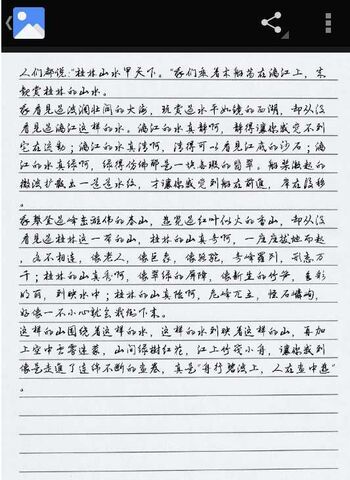 人们都说："桂林山水甲天下。"我们乘着木船荡在漓江上，来
观赏桂林的山水。
我看见过波澜壮阔的大海，玩赏过水平如镜的西湖，却从没
看见过漓江这样的水。漓江的水真静啊，静得让你感觉不到
它在流动；漓江的水真清啊，清得可以看见江底的沙石；漓
江的水真绿啊，绿得仿佛那是一块无瑕的翡翠。船桨激起的
微波扩散出一道道水纹，才让你感觉到船在前进，岸在后移
。
我攀登过峰峦雄伟的泰山，游览过红叶似火的香山，却从没
看见过桂林这一带的山，桂林的山真奇啊，一座座拔地而起
，各不相连，像老人，像巨象，像骆驼，奇峰罗列，形态万
千；桂林的山真秀啊，像翠绿的屏障，像新生的竹笋，色彩
明丽，倒映水中；桂林的山真险啊，危峰兀立，怪石嶙峋，
好像一不小心就会栽倒下来。
这样的山围绕着这样的水，这样的水倒映着这样的山，再加
上空中云雾迷蒙，山间绿树红花，江上竹筏小舟，让你感到
像是走进了连绵不断的画卷，真是"舟行碧波上，人在画中游"
。